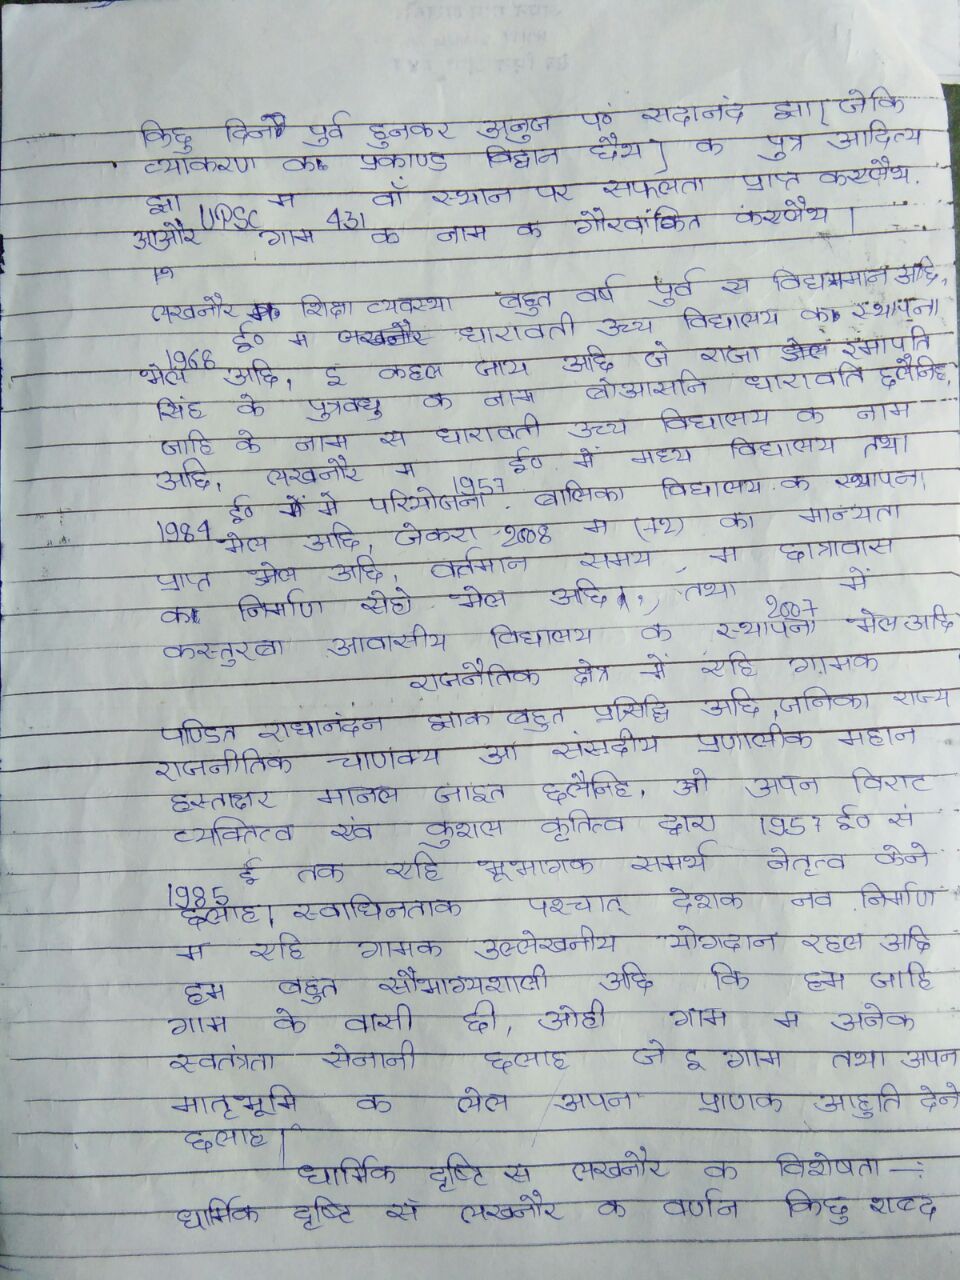 किछु दिनों पुर्व हुनकर अनुज पं० सदानंद झा (जेकि
व्याकरण का प्रकाण्ड विद्वान छैथ) क पुत्र आदित्य
झा UPSC म 431 वाँ स्थान पर सफलता प्राप्त करलैथ.
आओर गाम क नाम क गौरवांकित करलैथ ।
लखनौर शिक्षा व्यवस्था बहुत वर्ष पुर्व स विद्यममान अछि,
1968 ई० म लखनौर धारावती उच्य विद्यालय का स्थापना
भेल अछि, इ कहल जाय अछि जे राजा रमापति
सिंह के पुत्रवधु क नाम बोआसनि धारावति छलैनिह,
जाहि के नाम स धारावती उच्य विद्यालय क नाम
अछि, लखनौर म 1957 ई० में मध्य विद्यालय तथा
1984 ई० में परियोजना बालिका विद्यालय क स्थापना
भेल अछि, जेकरा 2008 म (+2) का मान्यता
प्राप्त भेल अछि, वर्तमान समय म छात्रावास
का निर्माण सेहो भेल अछि, तथा 2007 में
कस्तुरबा आवासीय विद्यालय क स्थापना भेल अछि
राजनैतिक क्षेत्र में एहि गामक
पण्डित राधानंदन झाक बहुत प्रसिद्धि अछि, जनिका राज्य
राजनीतिक चाणक्य आ संसदीय प्रणालीक महान
हस्ताक्षर मानल जाइत छलैनिह, ओ अपन विराट
व्यक्तित्व एंव कुशल कृतित्व द्वारा 1957 ई० सं
1985 ई तक एहि भूभागक समर्थ नेतृत्व केने
छलाह। स्वाधिनताक पश्चात् देशक नव निर्माण
म एहि गामक उल्लेखनीय योगदान रहल अछि
हम बहुत सौभाग्यशाली अछि कि हम जाहि
गाम के वासी छी, ओही गाम म अनेक
स्वतंत्रता सेनानी छलाह जे इ गाम तथा अपन
मातृभूमि क लेल अपन प्राणक आहुति देने
छलाह।
धार्मिक दृष्टि स लखनौर क विशेषता -:
धार्मिक दृष्टि सं लखनौर क वर्णन किछु शब्द